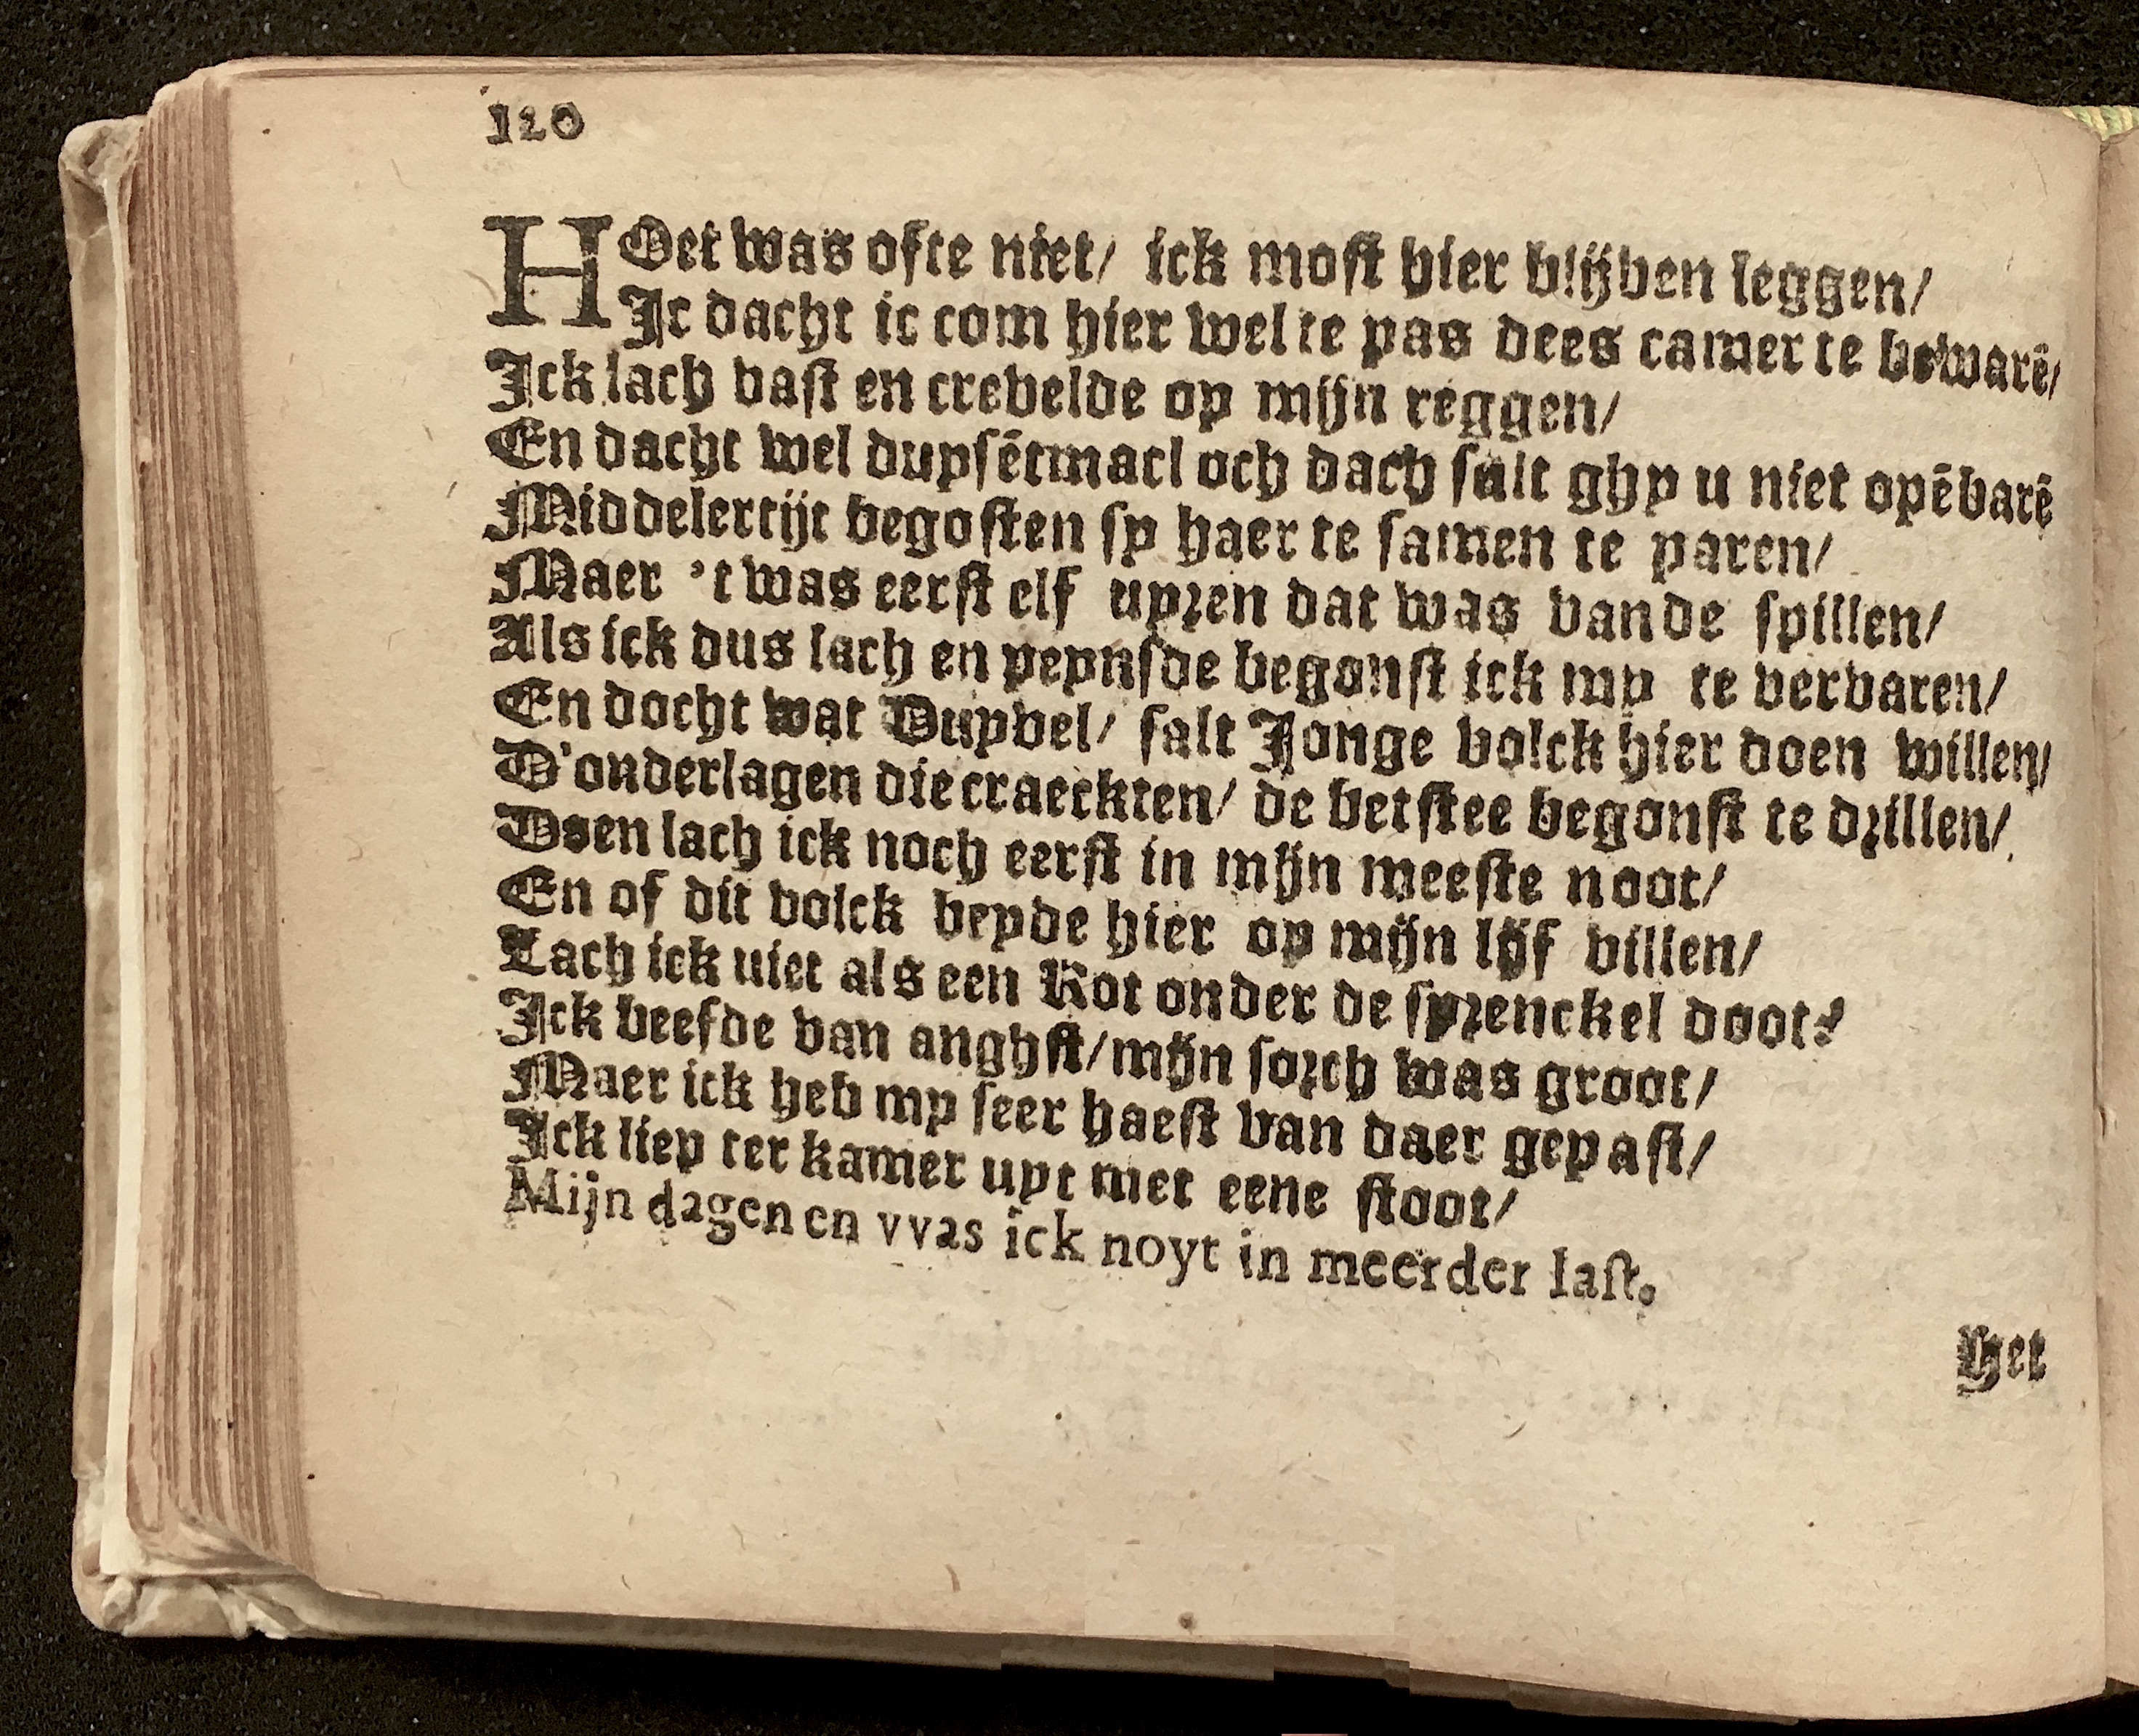 120
HOet was ofte niet/ ick most hier blijven leggen/
Ic dacht ic com hier wel te pas dees camer te bewarē/
Ick lach vast en crevelde op mijn reggen/
En dacht wel duysētmael och dach sult ghy u niet opēbarē
Middelertijt begosten sy haer te samen te paren/
Maer 't was eerst elf uyren dat was vande spillen/
Als ick dus lach en peynsde begonst ick my te vervaren/
En docht wat Duyvel/ salt Jonge volck hier doen willen/
D'onderlagen die craeckten/ de betstee begonst te drillen/
Doen lach ick noch eerst in mijn meeste noot/
En of dit volck beyde hier op mijn lijf villen/
Lach ick niet als een Rot onder de sprenckel doot?
Ick beefde van anghst/ mijn sorch was groot/
Maer ick heb my seer haest van daer gepast/
Ick liep ter kamer uyt met eene stoot/
Mijn dagen en vvas ick noyt in meerder last.
Het